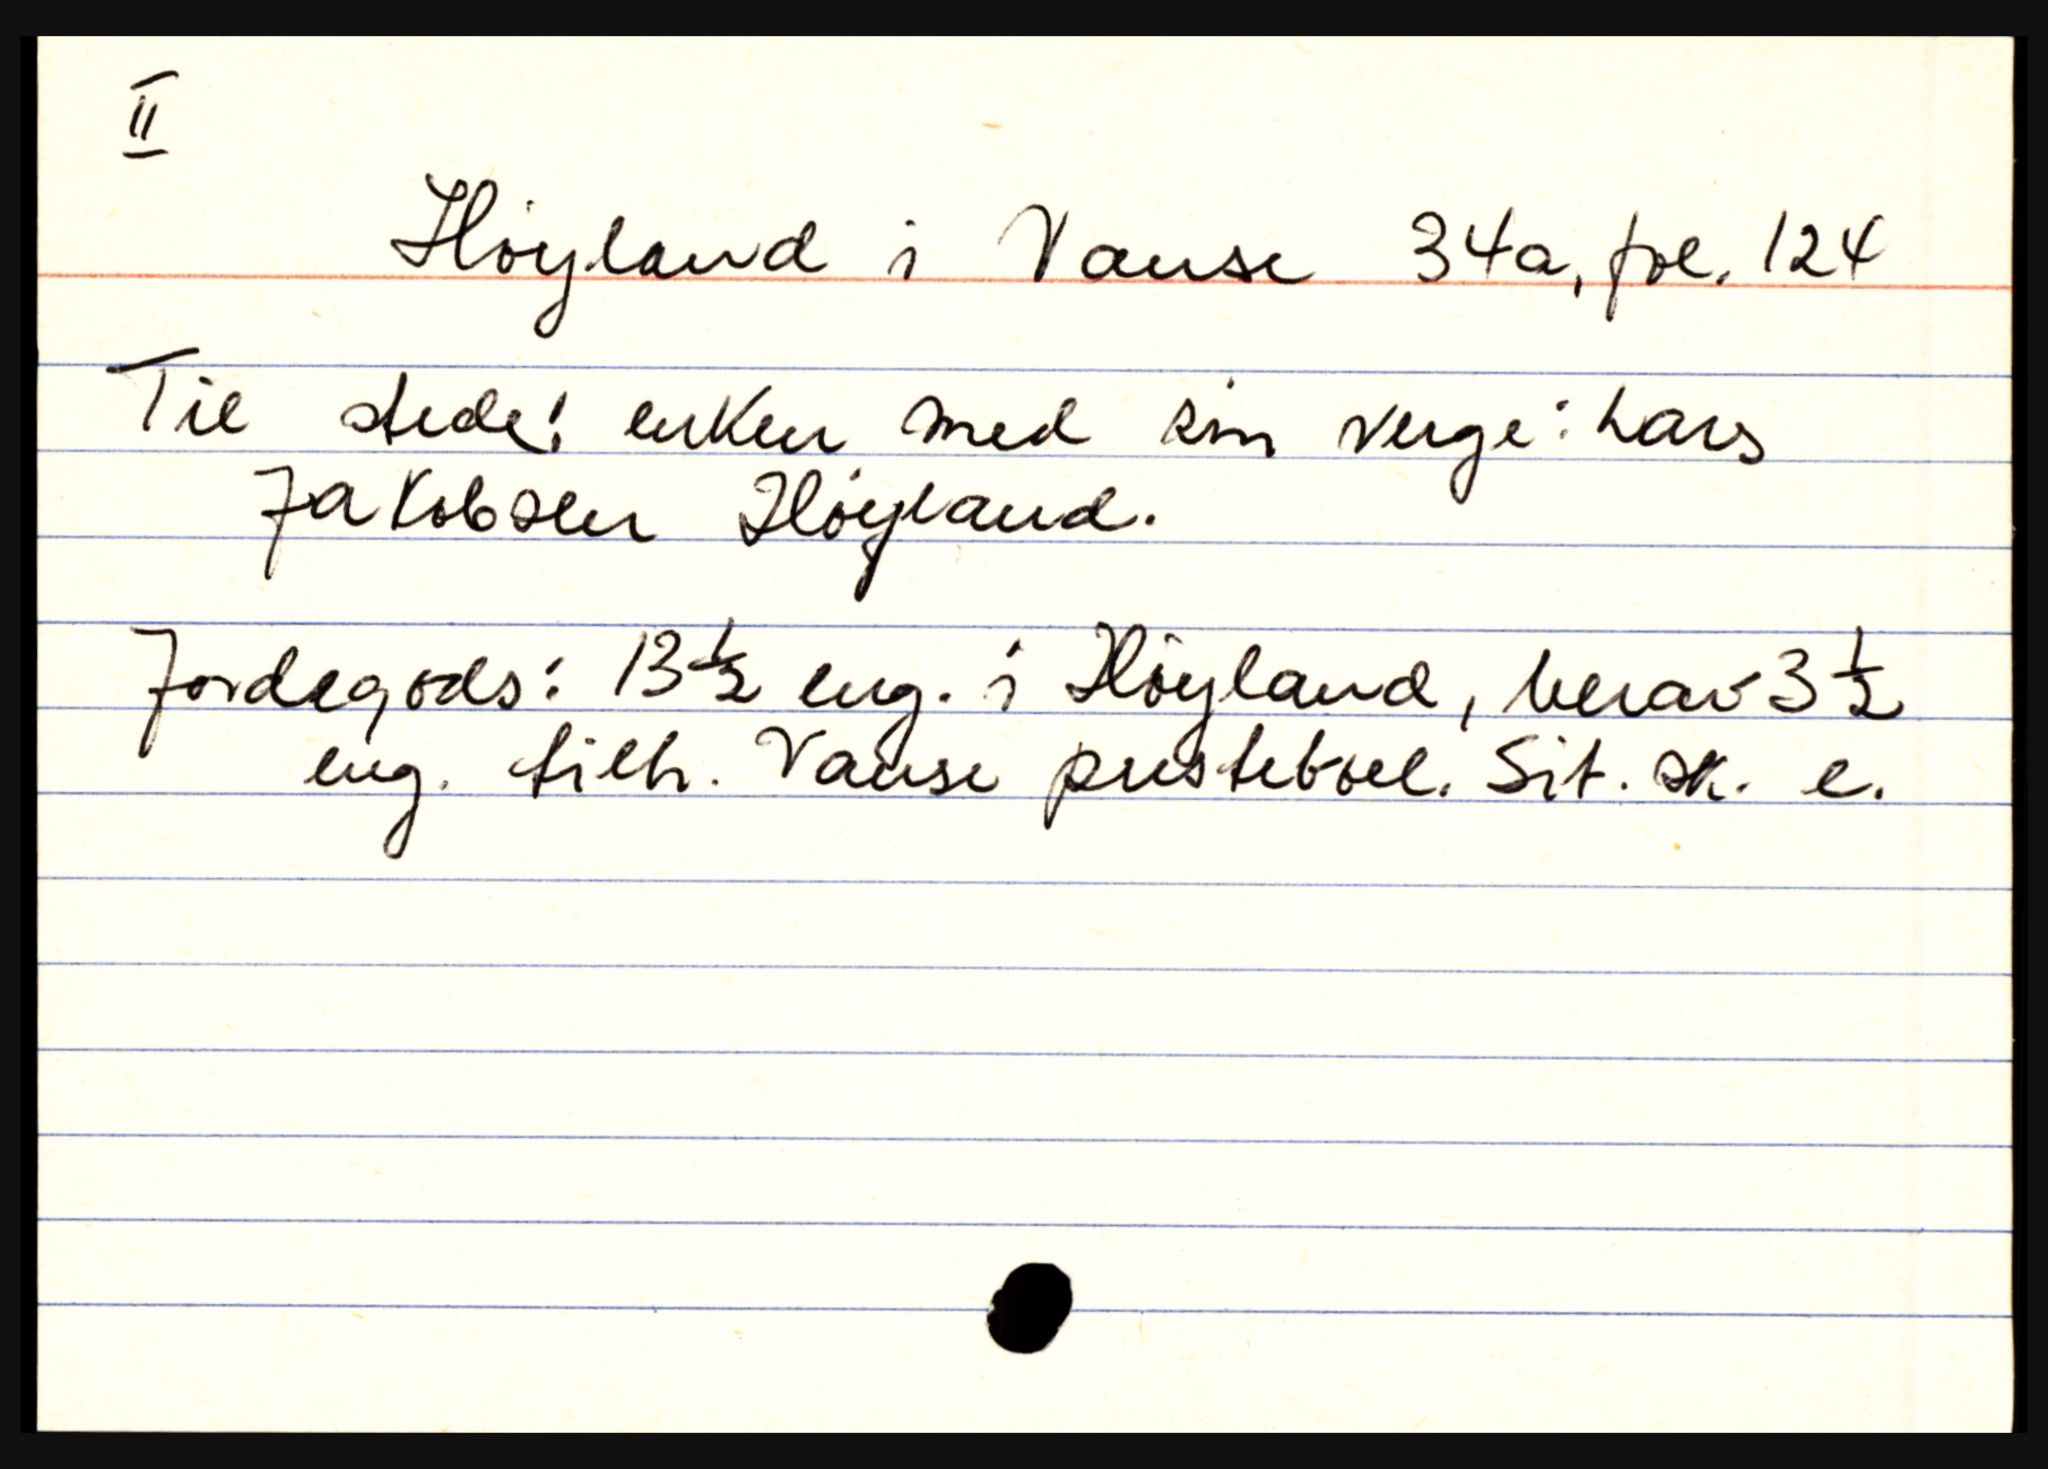 II
Høyland i Vanse 34a, fol. 124
Til stede: enken med sin verge: Lars
Jakobsen Høyland.
Jordegods: 13 ½ eng. i Høyland, herav 3 ½
eng. tilh. Vanse presteboel. Sit. sk. e.